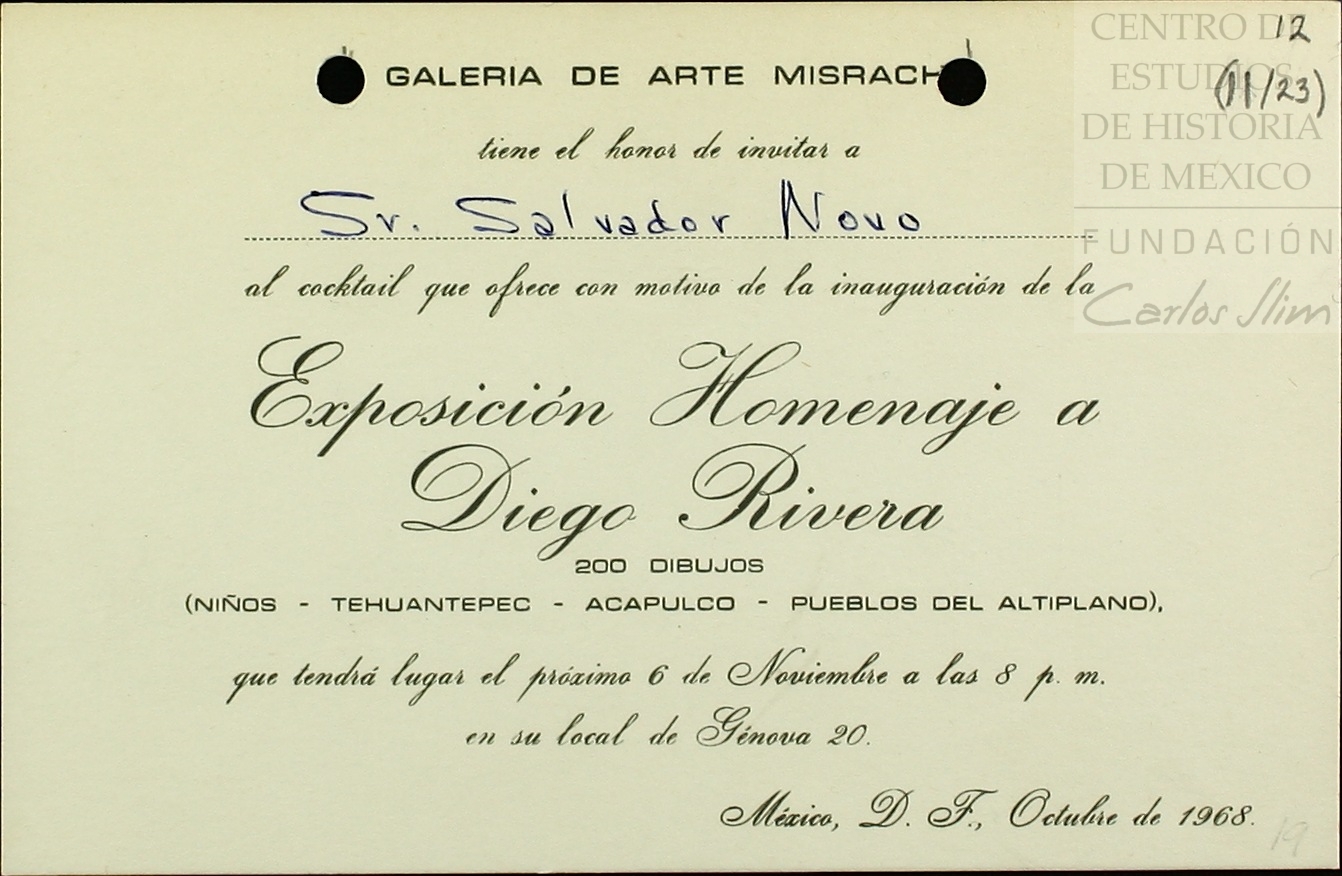 GALERIA DE ARTE MISRACH
tiene el honor de invitar a
Sr. Salvador Novo
al cocktail que ofrece con motivo de la inauguración de la
Exposición Homenaje a
Diego Rivera
200 DIBUJOS
(NIÑOS - TEHUANTEPEC - ACAPULCO - PUEBLOS DEL ALTIPLANO),
que tendrá lugar el próximo 6 de Noviembre a las 8 p. m.
en su local de Génova 20.
México, D. F., Octubre de 1968.
19
12
(11/23)
CENTRO DE
ESTUDIOS
DE HISTORIA
DE MEXICO
FUNDACIÓN
Carlos Slim